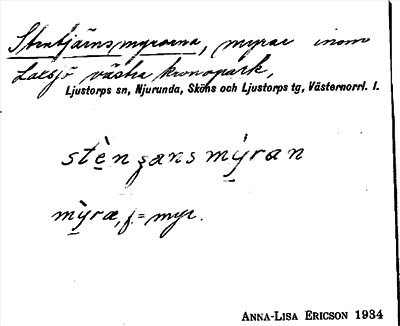 Stentjärnsmyrorna, myrar inom
Laxsjö västra kronopark,
Ljustorps sn, Njurunda, Sköns och Ljustorps tg, Västernorrl. l.
mỳræ, f. = myr.
ANNA-LISA ERICSON 1934